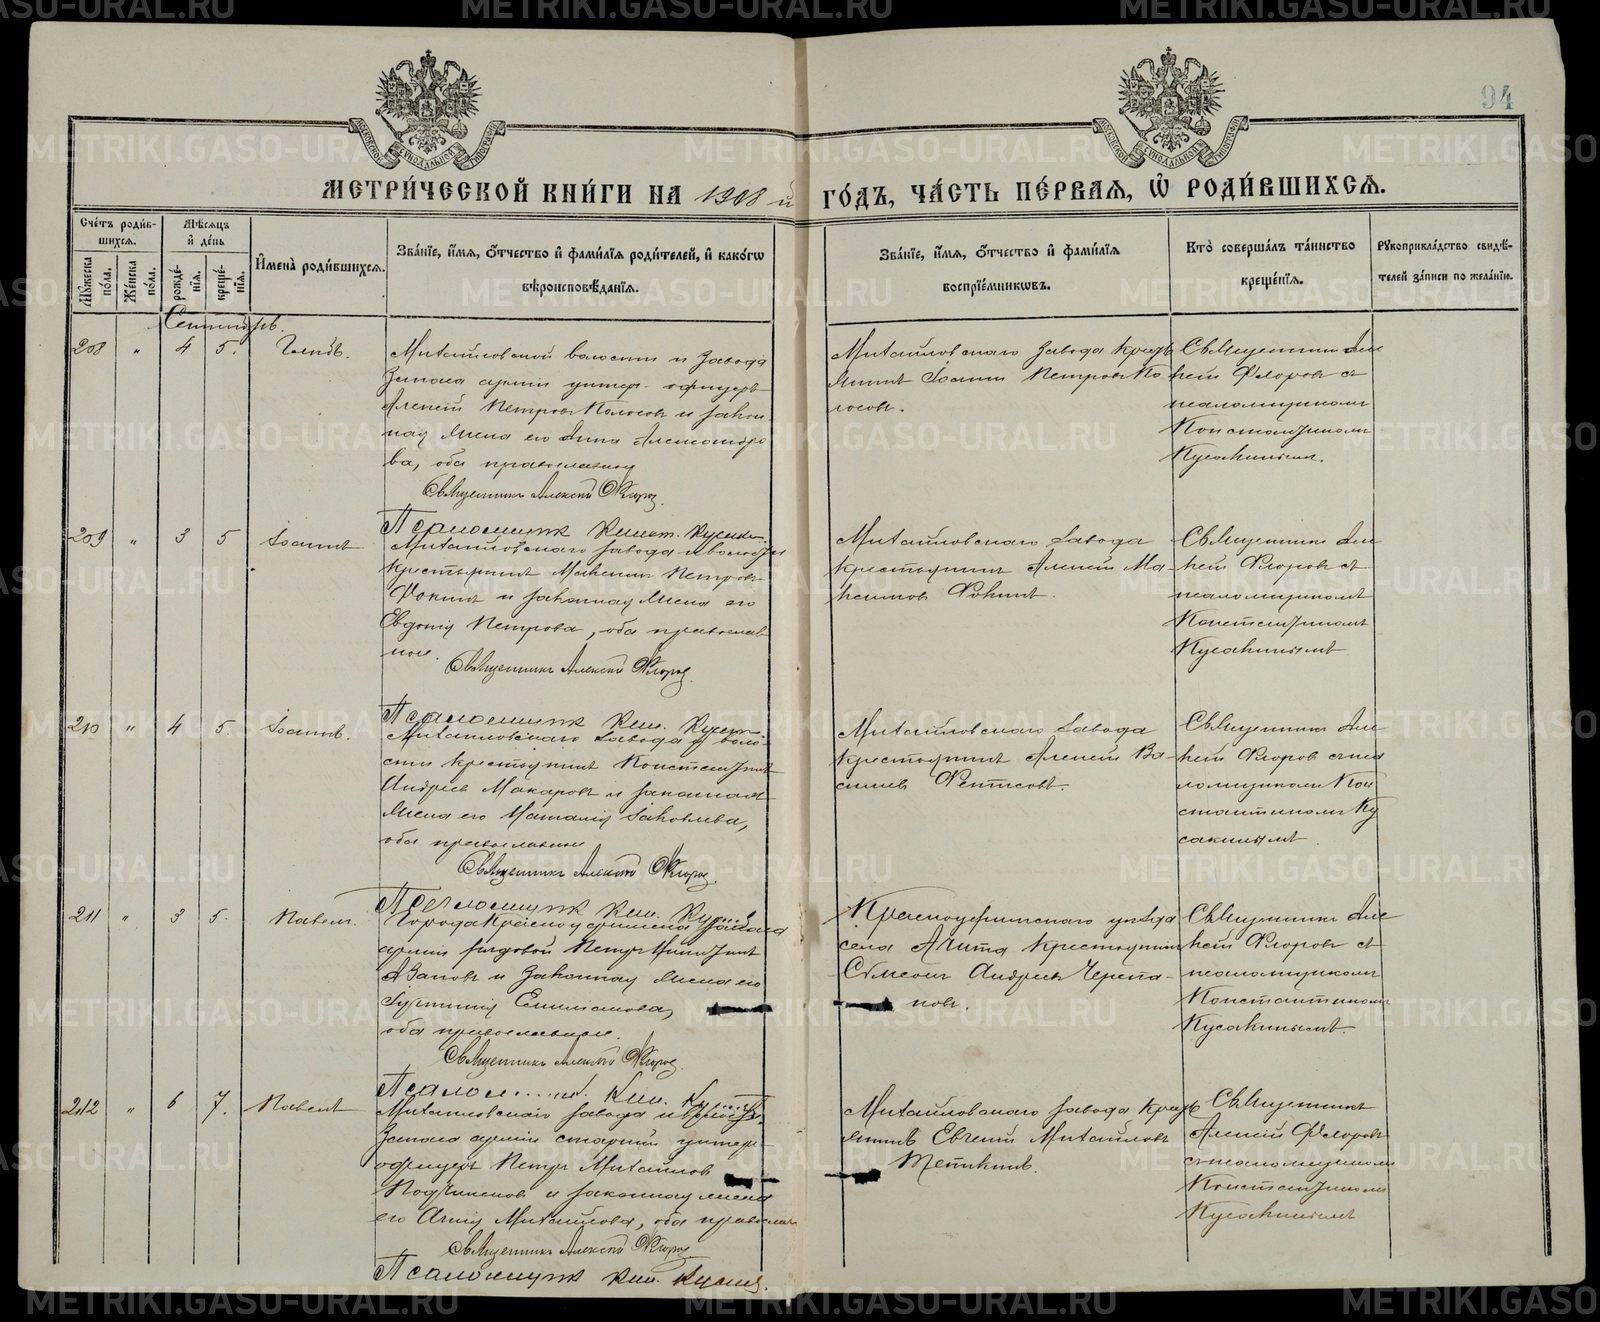 94
МЕТРИ́ЧЕСКОЙ КНИ́ГИ НА 1908 й ГО́ДЪ, ЧА́СТЬ ПЕ́РВАЯ, Ѡ РОДИ́ВШИХСЯ.
Сче́тъ роди́в-
шихся.
Мѣ́сяцъ
и де́нь
Мꙋ́жеска по́ла.
Же́нска по́ла.
рожде́нїя.
креще́нїя.
Имена̀ роди́вшихся.
Зва́нїе, и́мя, о́тчество и фами́лїя роди́телей, и како́гѡ
вѣроисповѣ́данїя.
Зва́нїе, и́мя, о́тчество и фами́лїя
воспрїе́мникѡвъ.
Кто̀ соверша́лъ та́инство
креще́нїя.
Рꙋкоприкла́дство свидѣ́-
телей за́писи по жела́нїю.
Сентябрь.
208 " 4 5. Глѣбъ.
Михайловской волости и завода
Запаса армiи унтеръ-офицеръ
Алексѣй Петровъ Колосовъ и закон-
ная жена его Анна Александро-
ва, оба православные
Священникъ Алексѣй Флоров
Псаломщик Конст. Кусакин
Михайловскаго завода Кресть
янинъ Iоаннъ Петровъ Ко
лосовъ.
Священникъ Але
ксѣй Флоровъ съ
псаломщикомъ
Константиномъ
Кусакинымъ.
209 " 3 5 Iоаннъ
Михайловскаго завода и волости
крестьянинъ Максимъ Петровъ
Фокинъ и законная жена его
Евдокiя Петрова, оба православ
ные.
Священникъ Алексѣй Флоров
Псаломщик Кон.
Михайловскаго завода
крестьянинъ Алексѣй Ма-
ксимовъ Фокинъ.
Священникъ Але
ксѣй Флоровъ съ
псаломщикомъ
Константиномъ
Кусакинымъ
210 " 4 5. Iоаннъ.
Михайловскаго завода и воло-
сти крестьянинъ Константинъ
Андреевъ Макаровъ и законная
жена его Наталiя Iаковлева,
оба православные
Священникъ Алексѣй Флоров
Псаломщик Кон.
Михайловскаго завода
крестьянинъ Алексѣй Ва-
сильевъ Фетисовъ.
Священникъ Але
ксѣй Флоровъ съ пса
ломщикомъ Кон
стантиномъ Ку
сакинымъ.
211 " 3 5. Павелъ.
Города Красноуфимска запаса
армiи рядовой Петръ
Азановъ и законная жена его
Емилiанова,
оба православные.
Священникъ Алексѣй Флоров
Псаломщик Кон.
Красноуфимскаго уѣзда
села Ачита крестьянинъ
Сѵмеонъ Андреевъ Черепа-
новъ.
Священникъ Але
ксѣй Флоровъ съ
псаломщикомъ
Константиномъ
Кусакинымъ
212 " 6 7. Павелъ
Михайловскаго завода и волости
Запаса армiи старшiй унтеръ-
офицеръ Петръ Михайловъ
и законная жена
его Анна Михайлова, оба православн
Священникъ Алексѣй Флоров
Псаломщик Кон. Кусакин
Михайловскаго завода Кресть
янинъ Евгенiй Михайловъ
Священникъ
Алексѣй Флоровъ
съ псаломщикомъ
Константиномъ
Кусакинымъ
METRIKI.GASO-URAL.RU